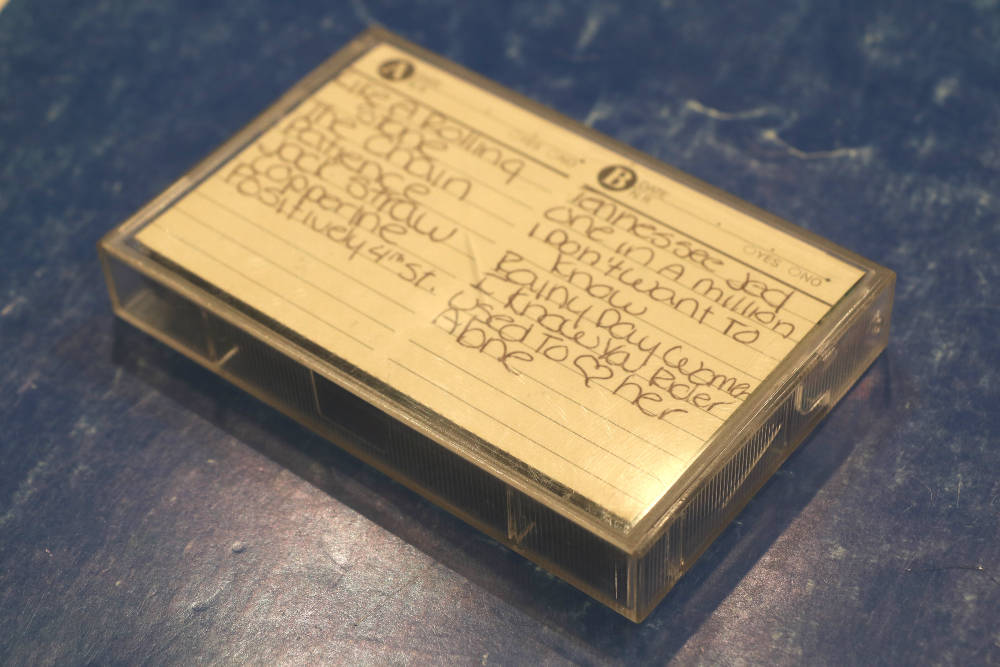 A
YES NO
Like A Rolling
Stone
The chain
Patience
Jack Straw
Copperline
Positively 4th St.
B DATE
N.R.
YES NO
Tennessee Jed
One in A million
I Don't want To
Know
Rainy Day Women
I Know You Rider
Used To ♡ her
Alone